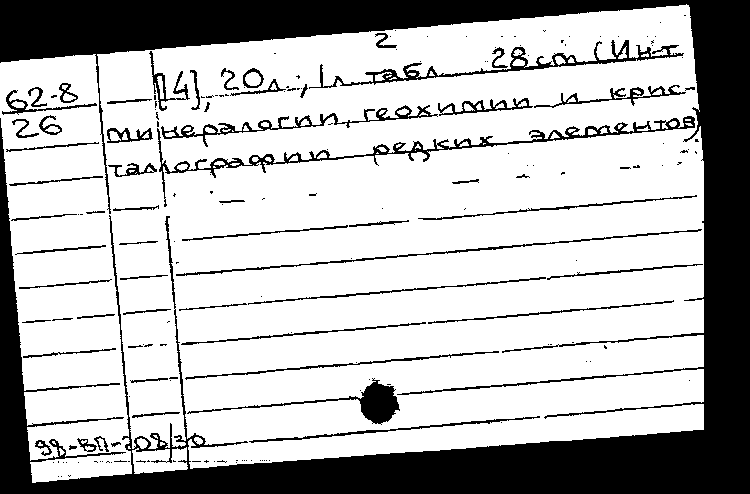 2
62-8 [4], 20л., 1л табл 28cm (Ин-т
26 минералогии, геохимии и крис-
таллографии редких элементов)
98-ВП-208/30